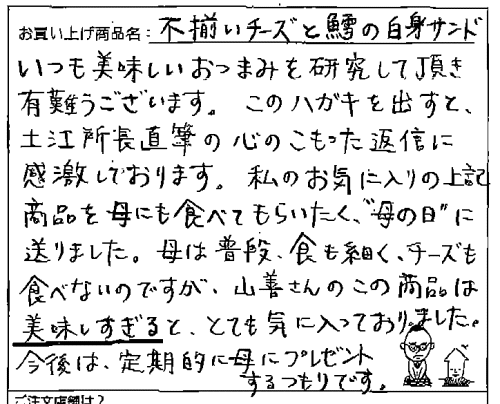 お買い上げ商品名：不揃いチーズと鱈の白身サンド
いつも美味しいおつまみを研究して頂き
有難うございます。このハガキを出すと、
土江所長直筆の心のこもった返信に
感激しております。私のお気に入りの上記
商品を母にも食べてもらいたく、"母の日"に
送りました。母は普段、食も細く、チーズも
食べないのですが、山善さんのこの商品は
美味しすぎると、とても気に入っておりました。
今後は、定期的に母にプレゼント
するつもりです。
ご注文店舗は？